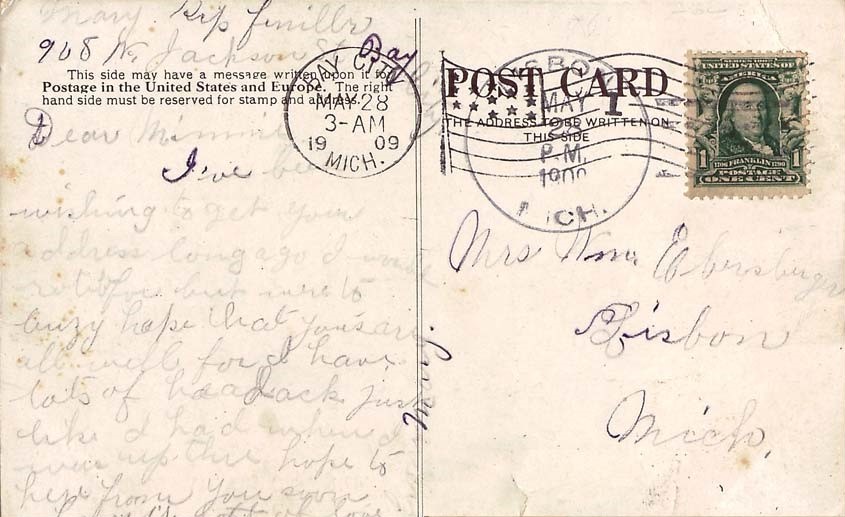 Mary
908 N. Jackson St Bay City
This side may have a message written upon it for
Postage in the United States and Europe. The right
hand side must be reserved for stamp and address.
Dear Minnie
I've been
wishing to get your
address long ago I would
but were to
buzy hope that you's are
all well for I have
lots of headack just
like I had when I
was up there hope to
hear from you soon
Mary.
BAY CITY
MAY 28
3-AM
19 09
MICH.
POST CARD
THE ADDRESS TO BE WRITTEN ON
THIS SIDE
MAY
P.M.
MICH.
SERIES 1902
UNITED STATES OF
AMERICA
1 FRANKLIN 1
POSTAGE
ONE CENT
Mrs Wm Ebersberger
Lisbon
Mich.